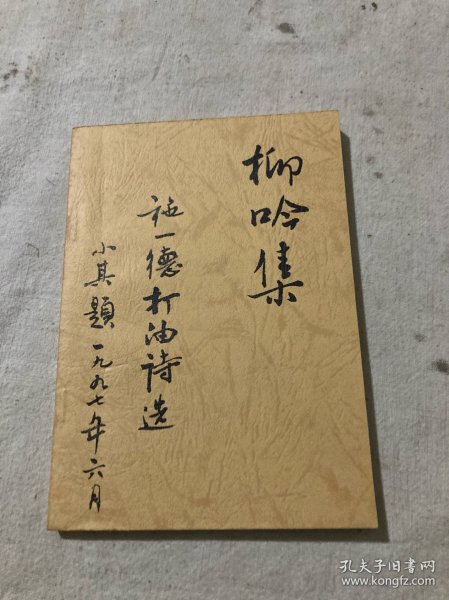 柳吟集
施一德打油詩选
小其題一九九七年六月
孔夫子旧书网
www.kongfz.com